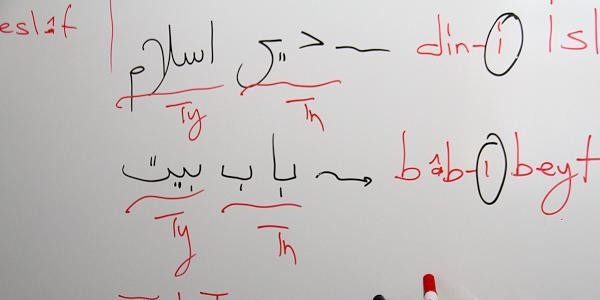 eslâf
دين اسلام — din-i İsl
Ty Tn
باب بيت → bâb-ı beyt
Ty Tn